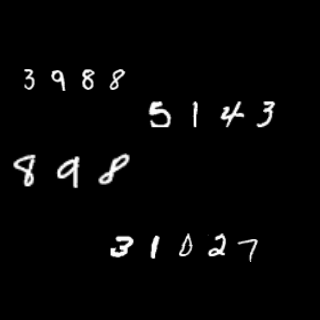 3988
5143
898
31027